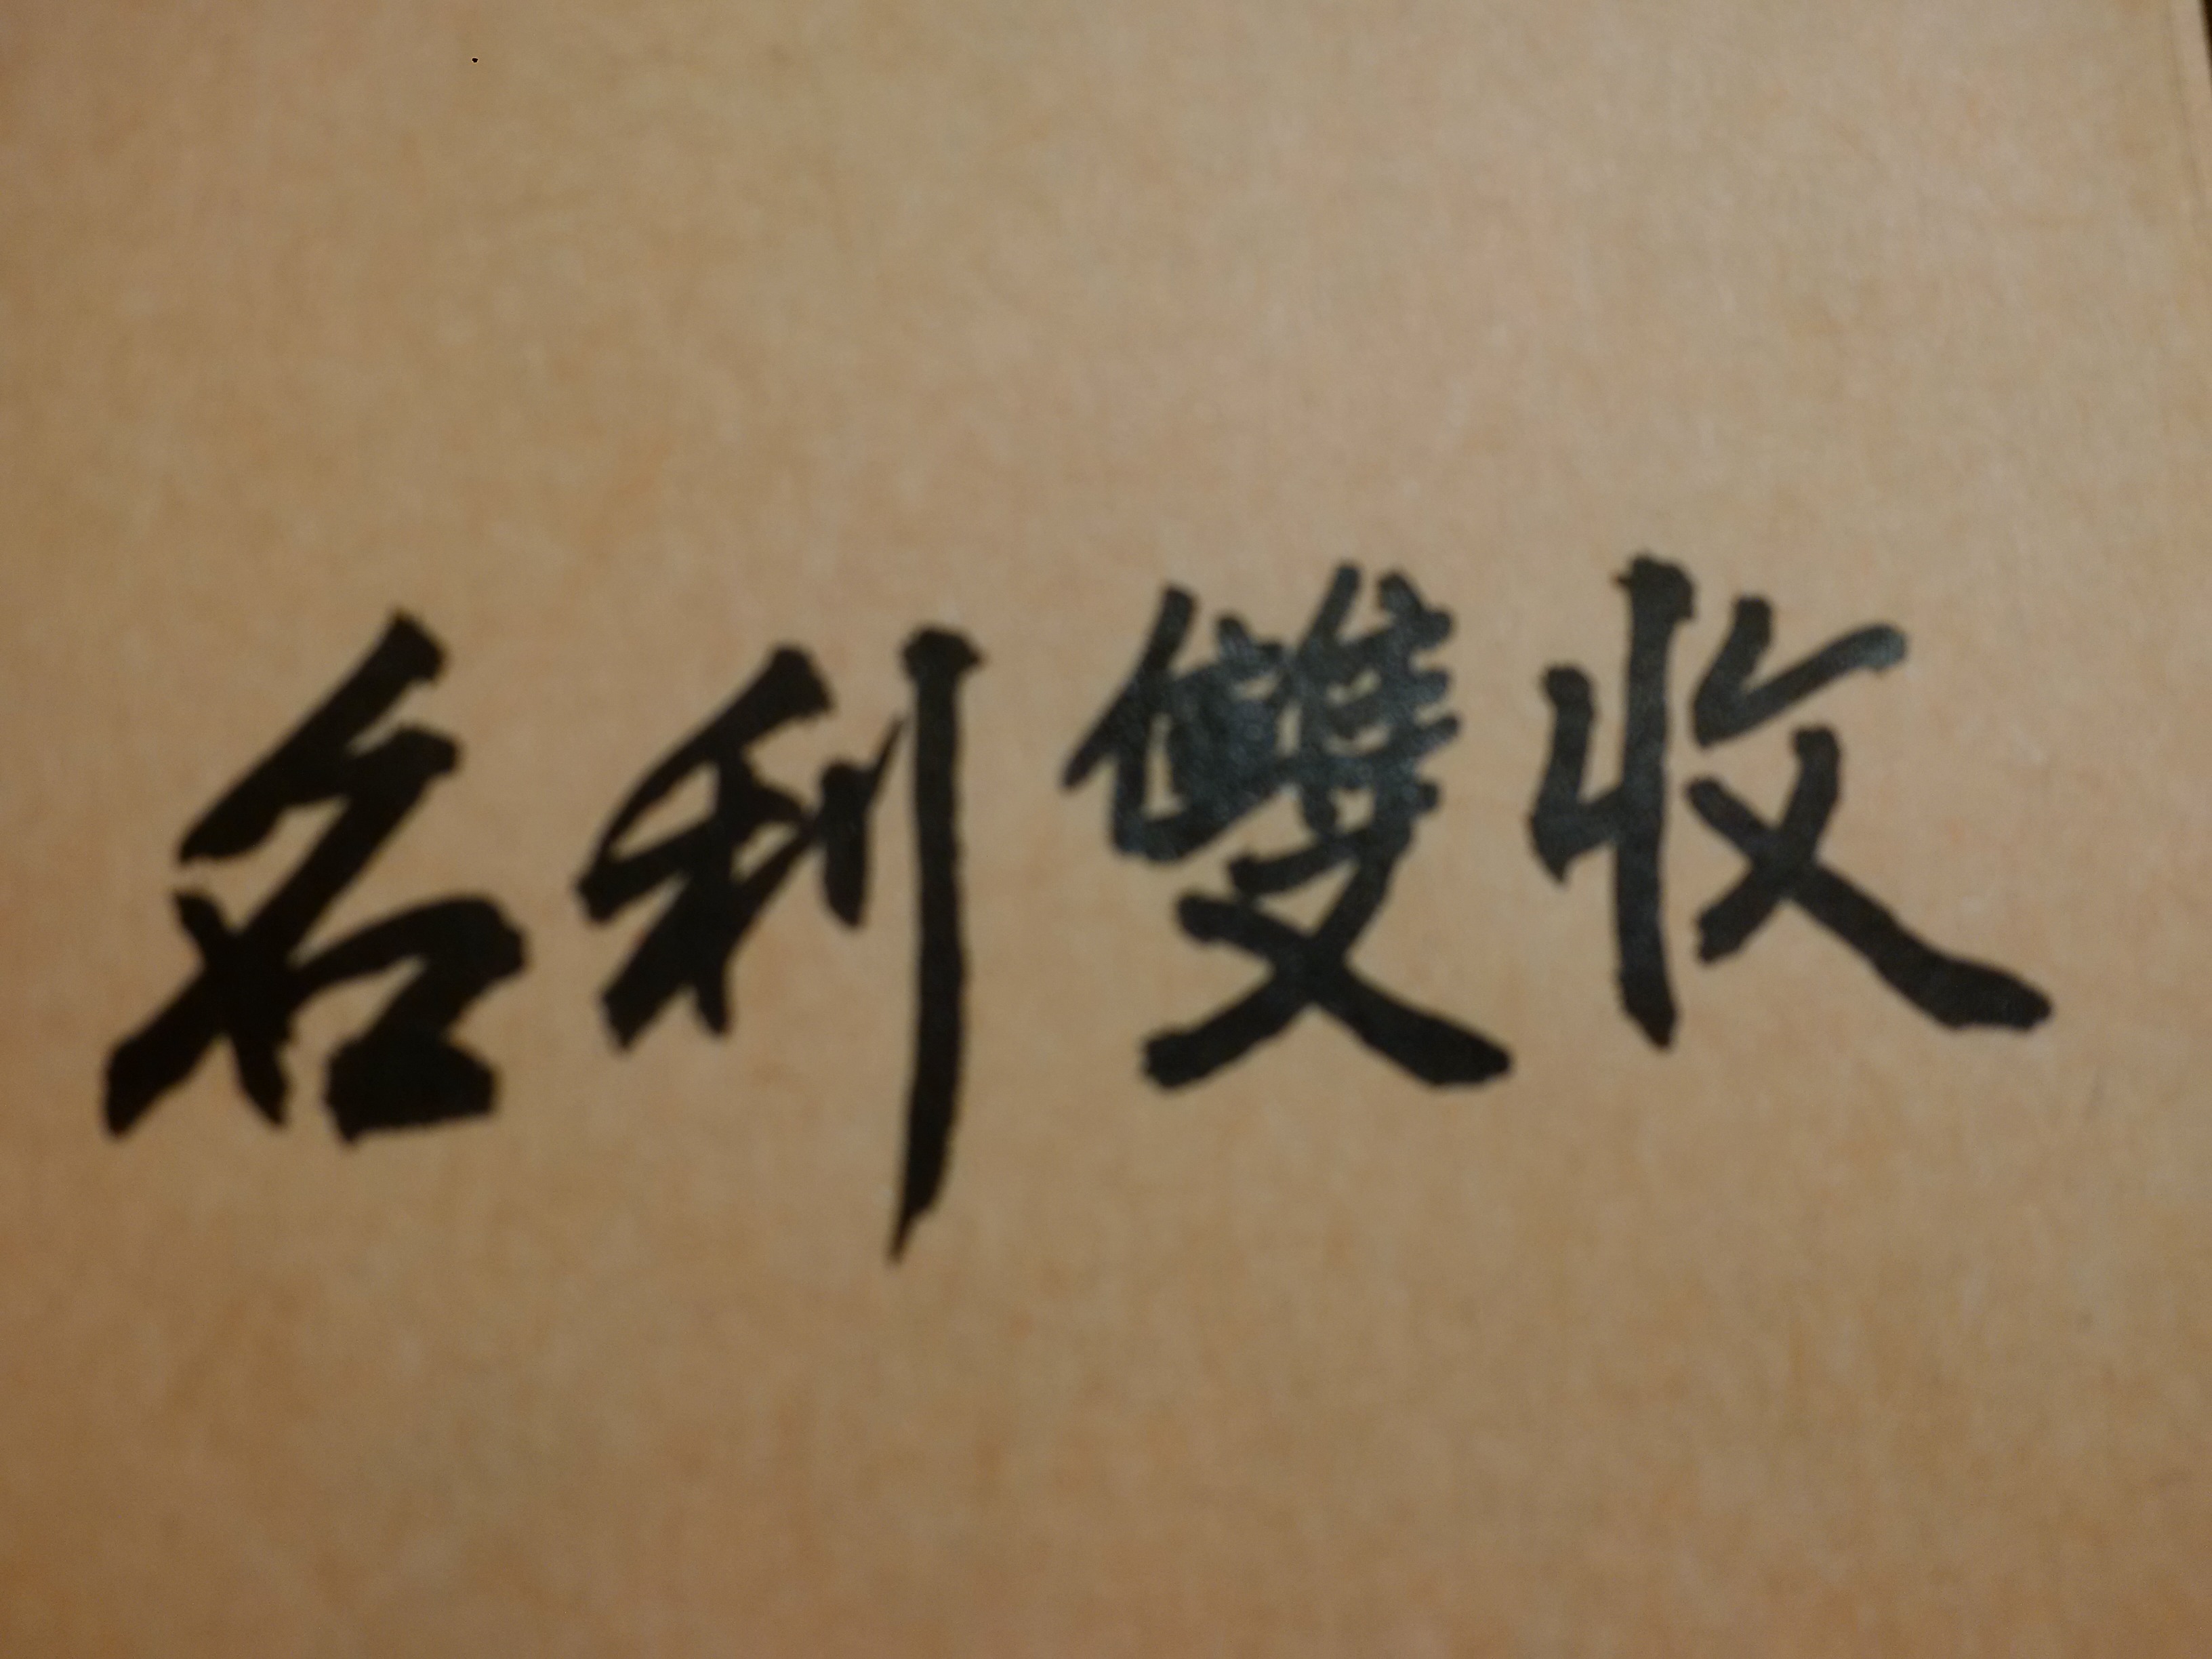 名利雙收